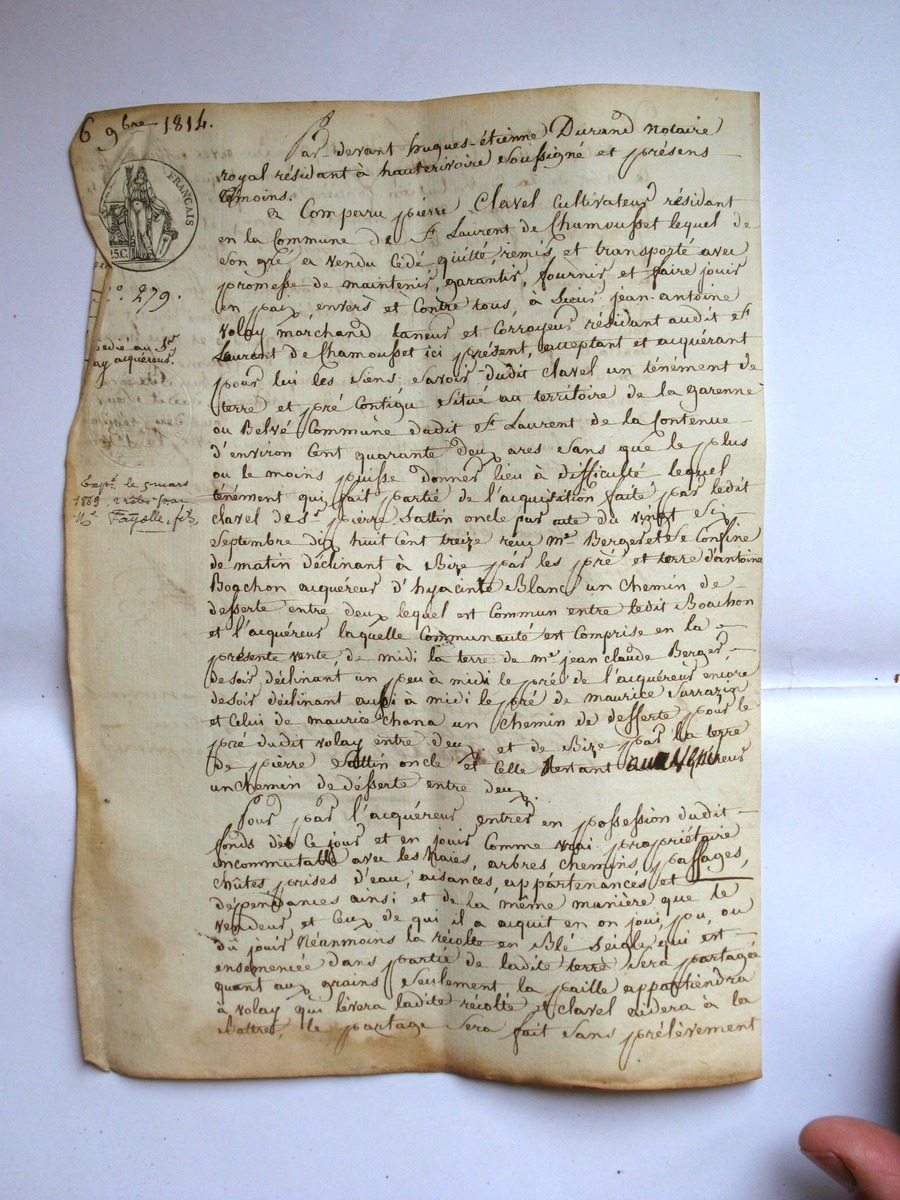 6 9bre 1814.
FRANÇAIS
25C.
N.° 279.
au Sr
ay acquéreur.
Exp.on le 5 mars
1869
Me Fayolle, fils
Par-devant hugues-étienne Durand Notaire
royal résidant à hauterivoire Soussigné et présens
témoins.
a Comparu pierre Clavel Cultivateur résidant
en la Commune de St Laurent de Chamousset lequel de
Son gré a vendu Cédé quitté, remis, et transporté avec
promesse de maintenir, garantir, fournir, et faire jouir
en paix, envers et Contre tous, à Sieur jean-antoine
Volay marchand taneur et Corroyeur résidant audit St
Laurent de Chamousset ici présent, acceptant et acquérant
pour lui les Siens. Savoir dudit Clavel un ténément de
terre et pré Contigu Situé au territoire de la garenne
ou Belvé Commune dudit St Laurent de la Contenue
d'environ Cent quarante deux ares Sans que le plus
ou le moins puisse donner lieu à difficulté lequel
ténément qui fait partie de l'acquisition faite par ledit
Clavel de Sr pierre Sattin oncle par acte du vingt Six
Septembre dix huit Cent treize reçu Me Berger et Se Confine
de matin déclinant à Bize par les pré et terre d'antoine
Boachon acquéreur d'hyacinte Blanc un chemin de
desserte entre deux lequel est Commun entre ledit Boachon
et l'acquéreur laquelle Communauté est Comprise en la
présente vente, de midi la terre de Me jean Claude Berger,
de Soir déclinant un peu à midi le pré de l'acquéreur encore
de Soir déclinant aussi à midi le pré de maurice Sarrazin
et Celui de maurice Chana un chemin de desserte pour le
pré dudit Volay entre deux. et de Bize par la terre
de pierre Sattin oncle et Celle Restant au
un Chemin de desserte entre deux.
Pour par l'acquéreur entrer en possession dudit
fonds dès Ce jour et en jouir Comme vrai propriétaire
incommutable avec les haies, arbres chemins, passages,
chûtes, prises d'eau, aisances, appartenances et
dépendances ainsi et de la même manière que le
Vendeur, et Ceux de qui il a acquit en on joui, pu, ou
dû jouir Néanmoins la récolte en Blé Seigle, qui est
ensemencée dans partie de ladite terre Sera partagée
quant aux grains Seulement la paille appartiendra
à Volay qui lèvera ladite récolte et Clavel aidera à la
battre, le partage Sera fait Sans prélèvement